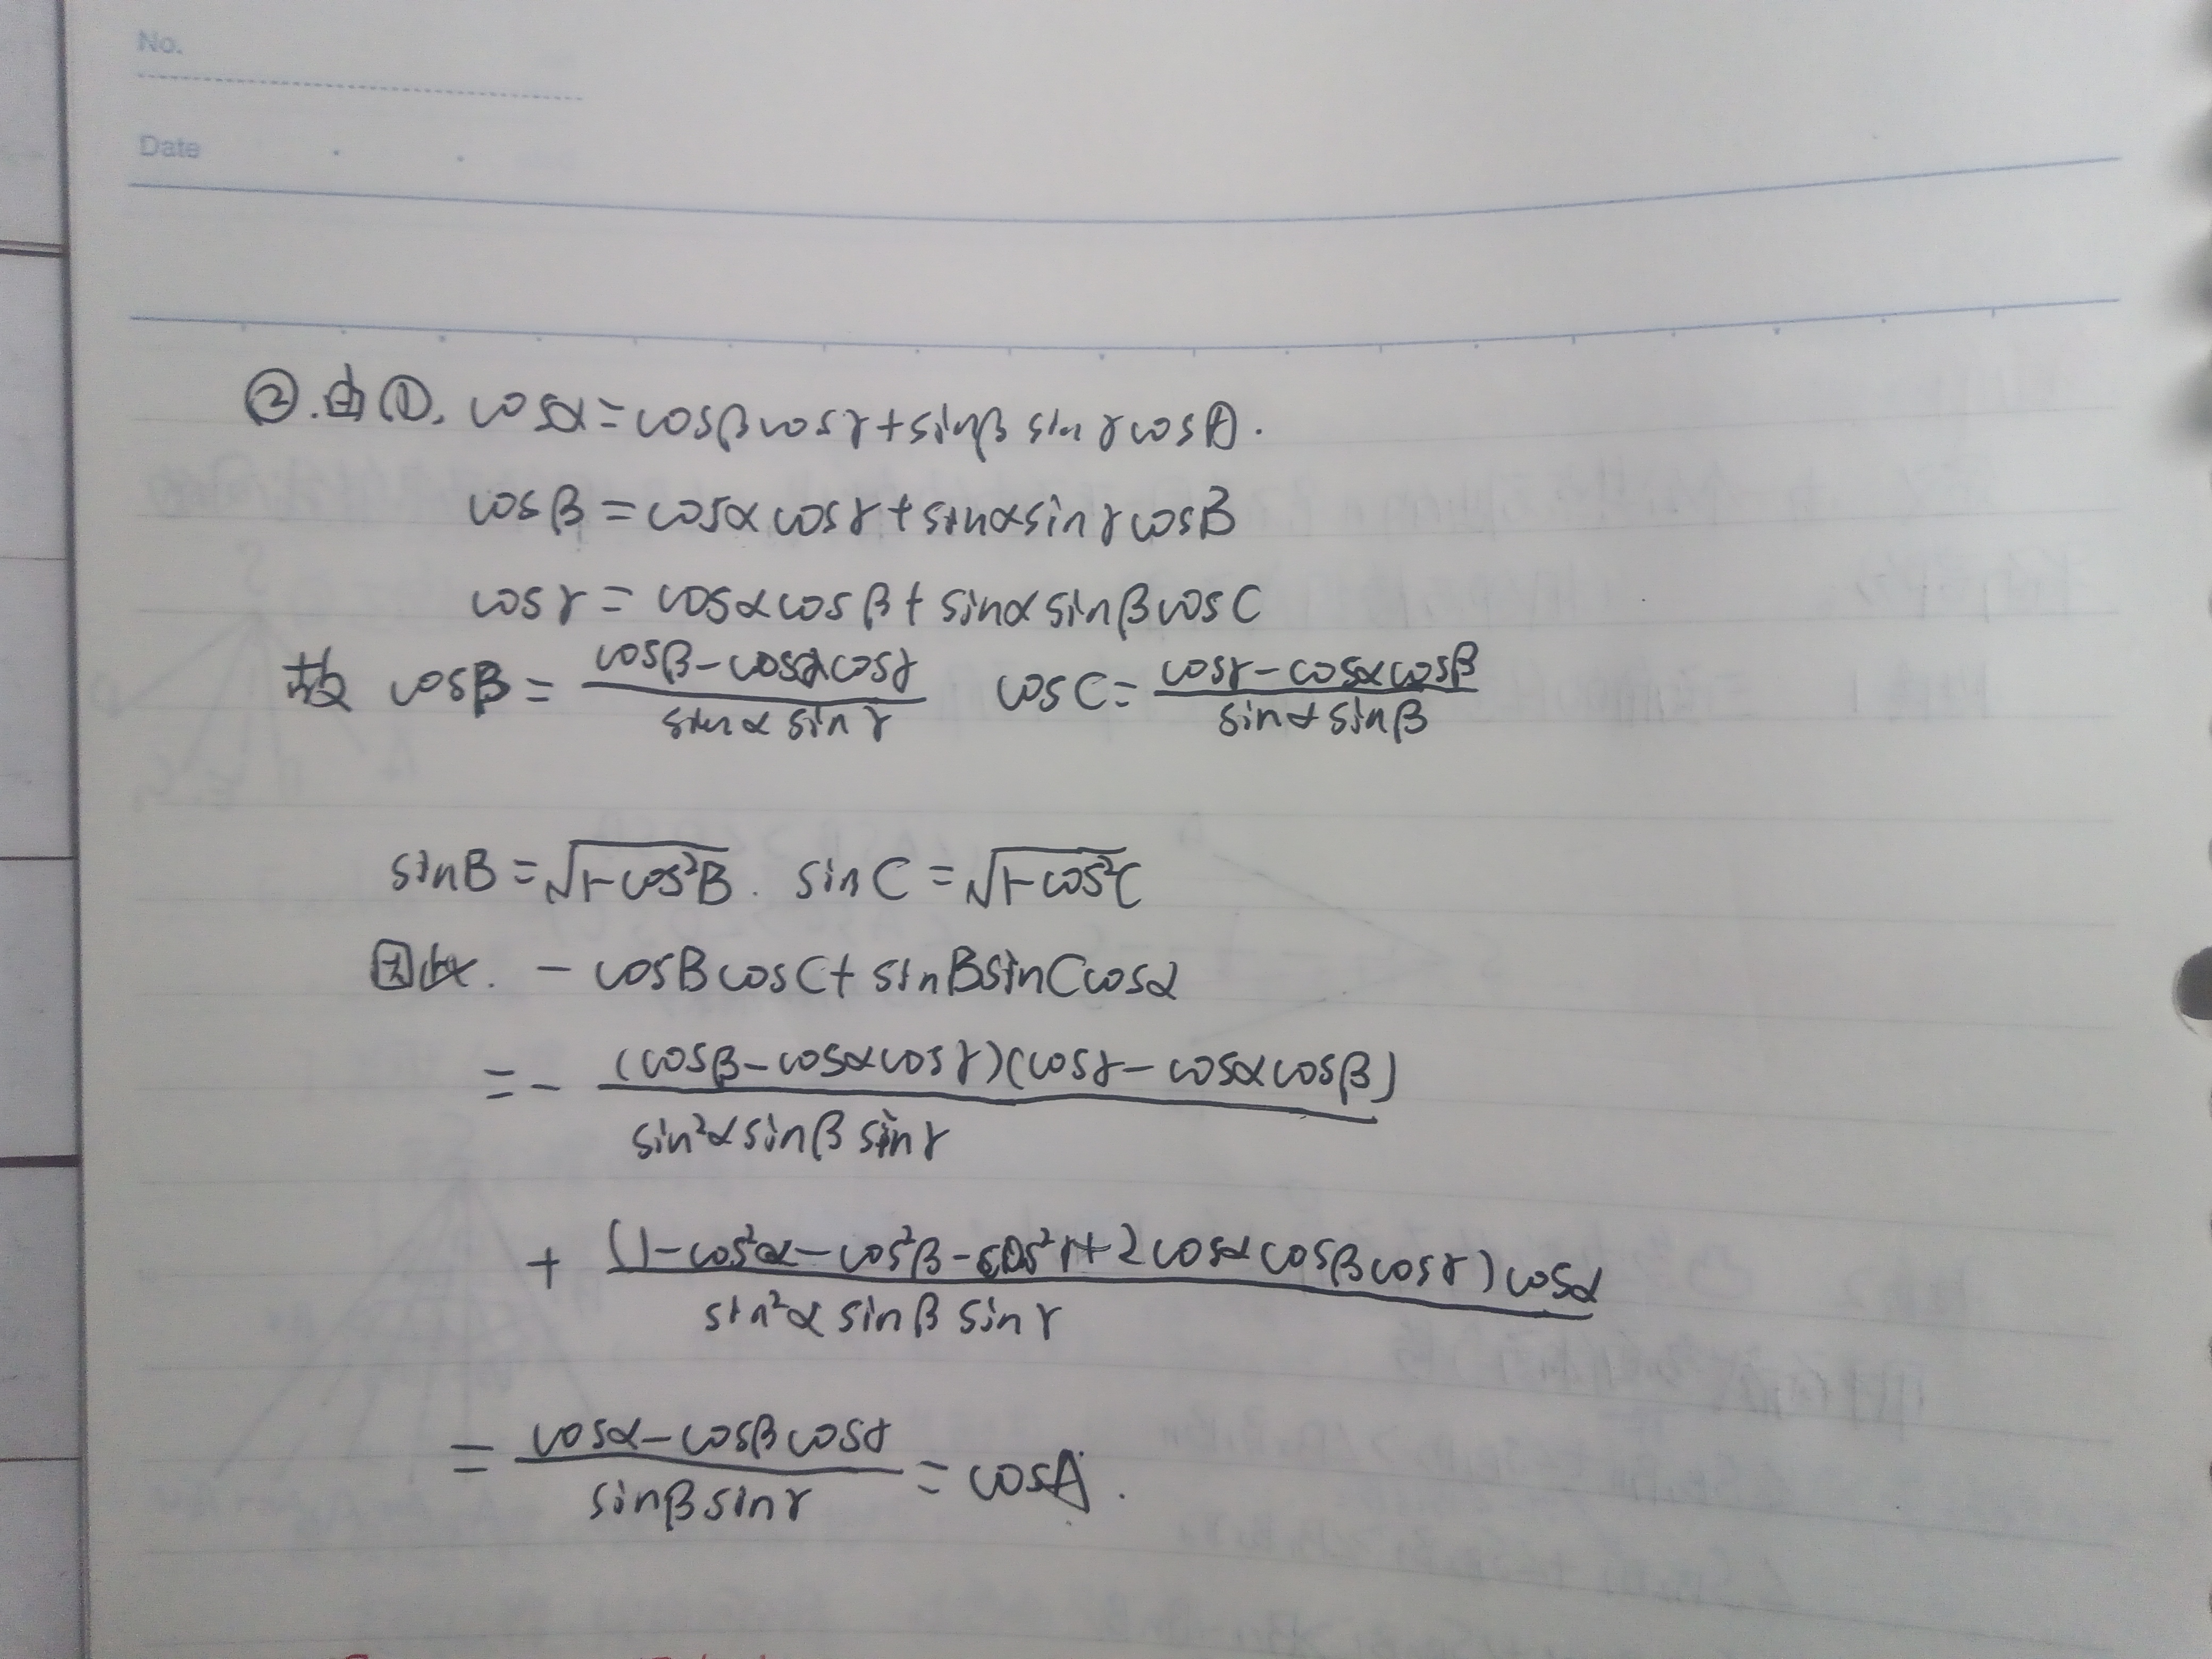 No.
Date
②.由①, cosα=cosβcosγ+sinβ sinγcosA.
cosβ=cosαcosγ+sinαsinγcosB
cosγ=cosαcosβ+sinαsinβcosC
故 cosB=(cosβ-cosαcosγ)/(sinα sinγ) cosC=(cosγ-cosαcosβ)/(sinα sinβ)
sinB=√(1-cos²B). sinC=√(1-cos²C)
因此. -cosBcosC+sinBsinCcosα
=-(cosβ-cosαcosγ)(cosγ-cosαcosβ)/(sin²αsinβ sinγ)
+(1-cos²α-cos²β-cos²γ+2cosαcosβcosγ)cosα/(sin²αsinβ sinγ)
=(cosα-cosβcosγ)/(sinβsinγ)=cosA.